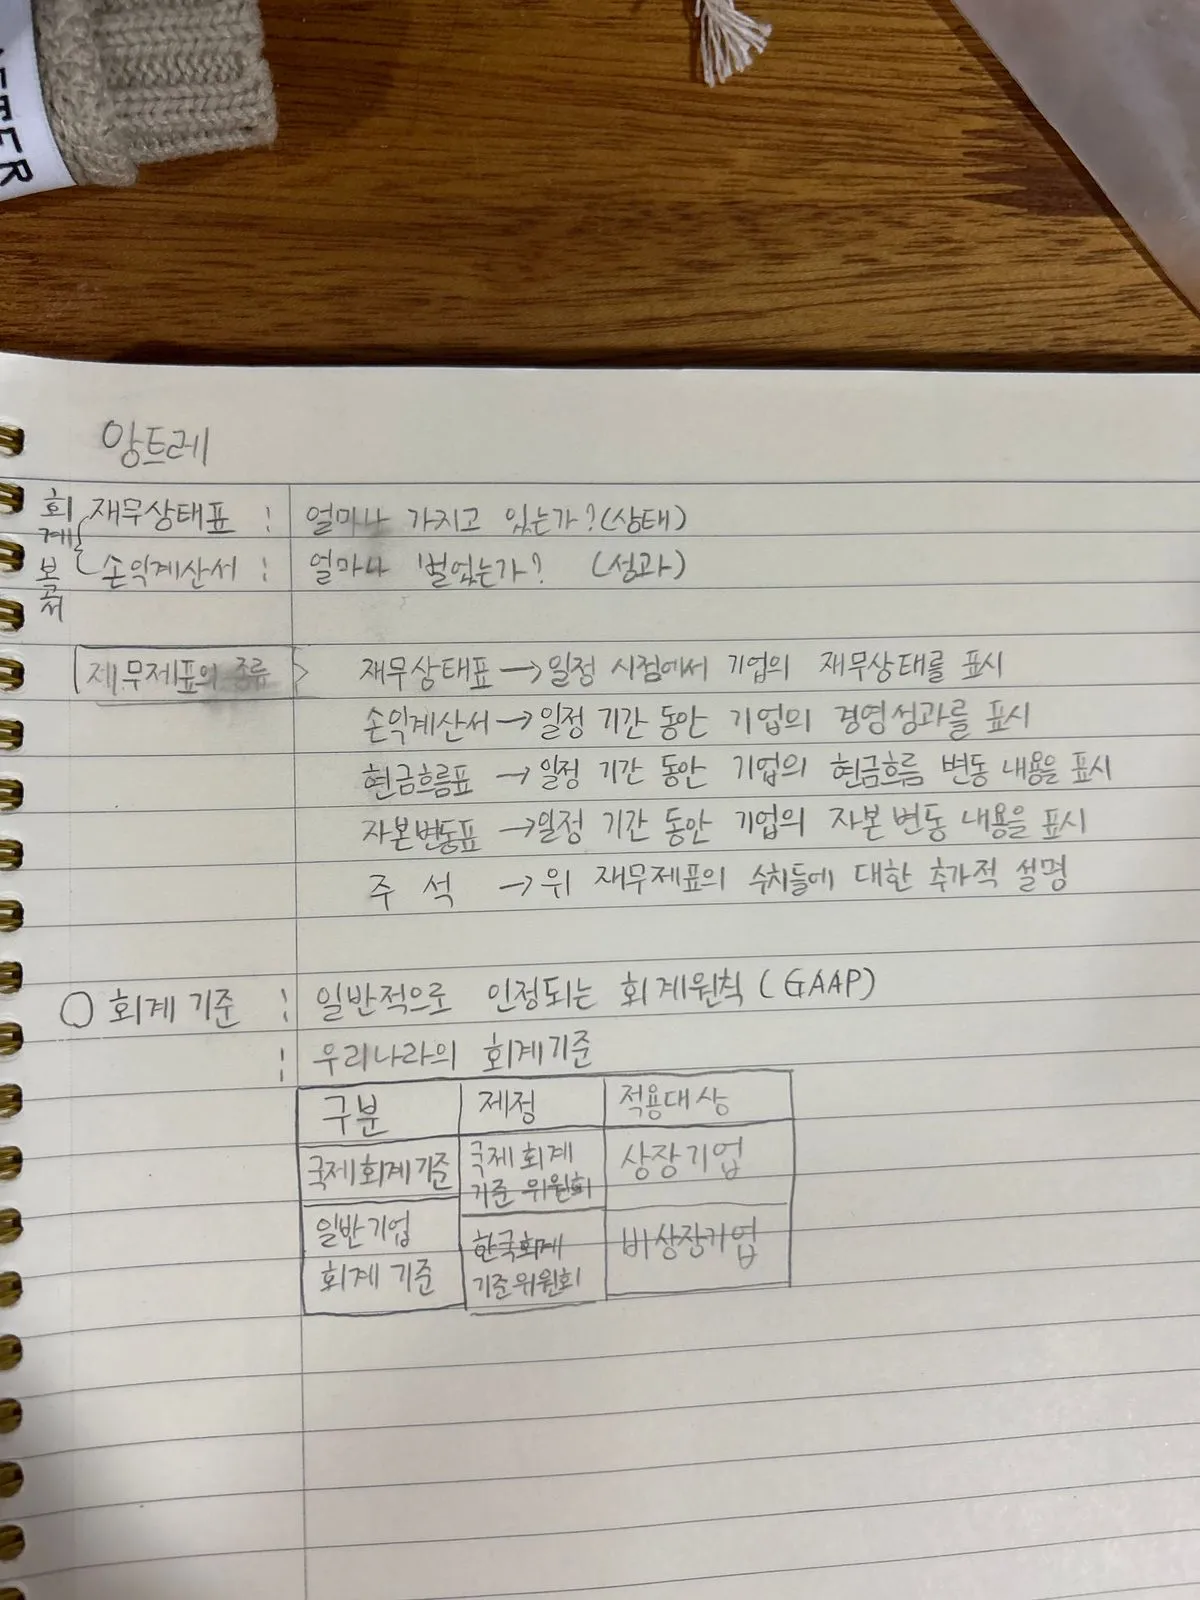 앙트레
회계보고서
재무상태표 : 얼마나 가지고 있는가? (상태)
손익계산서 : 얼마나 벌었는가? (성과)
재무제표의 종류 재무상태표 → 일정 시점에서 기업의 재무상태를 표시
손익계산서 → 일정 기간 동안 기업의 경영성과를 표시
현금흐름표 → 일정 기간 동안 기업의 현금흐름 변동 내용을 표시
자본변동표 → 일정 기간 동안 기업의 자본변동 내용을 표시
주 석 → 위 재무제표의 수치들에 대한 추가적 설명
○ 회계 기준 : 일반적으로 인정되는 회계원칙 (GAAP)
: 우리나라의 회계기준
구분 제정 적용대상
국제회계기준 국제회계 상장기업
기준 위원회
일반기업 한국회계 비상장기업
회계 기준 기준위원회